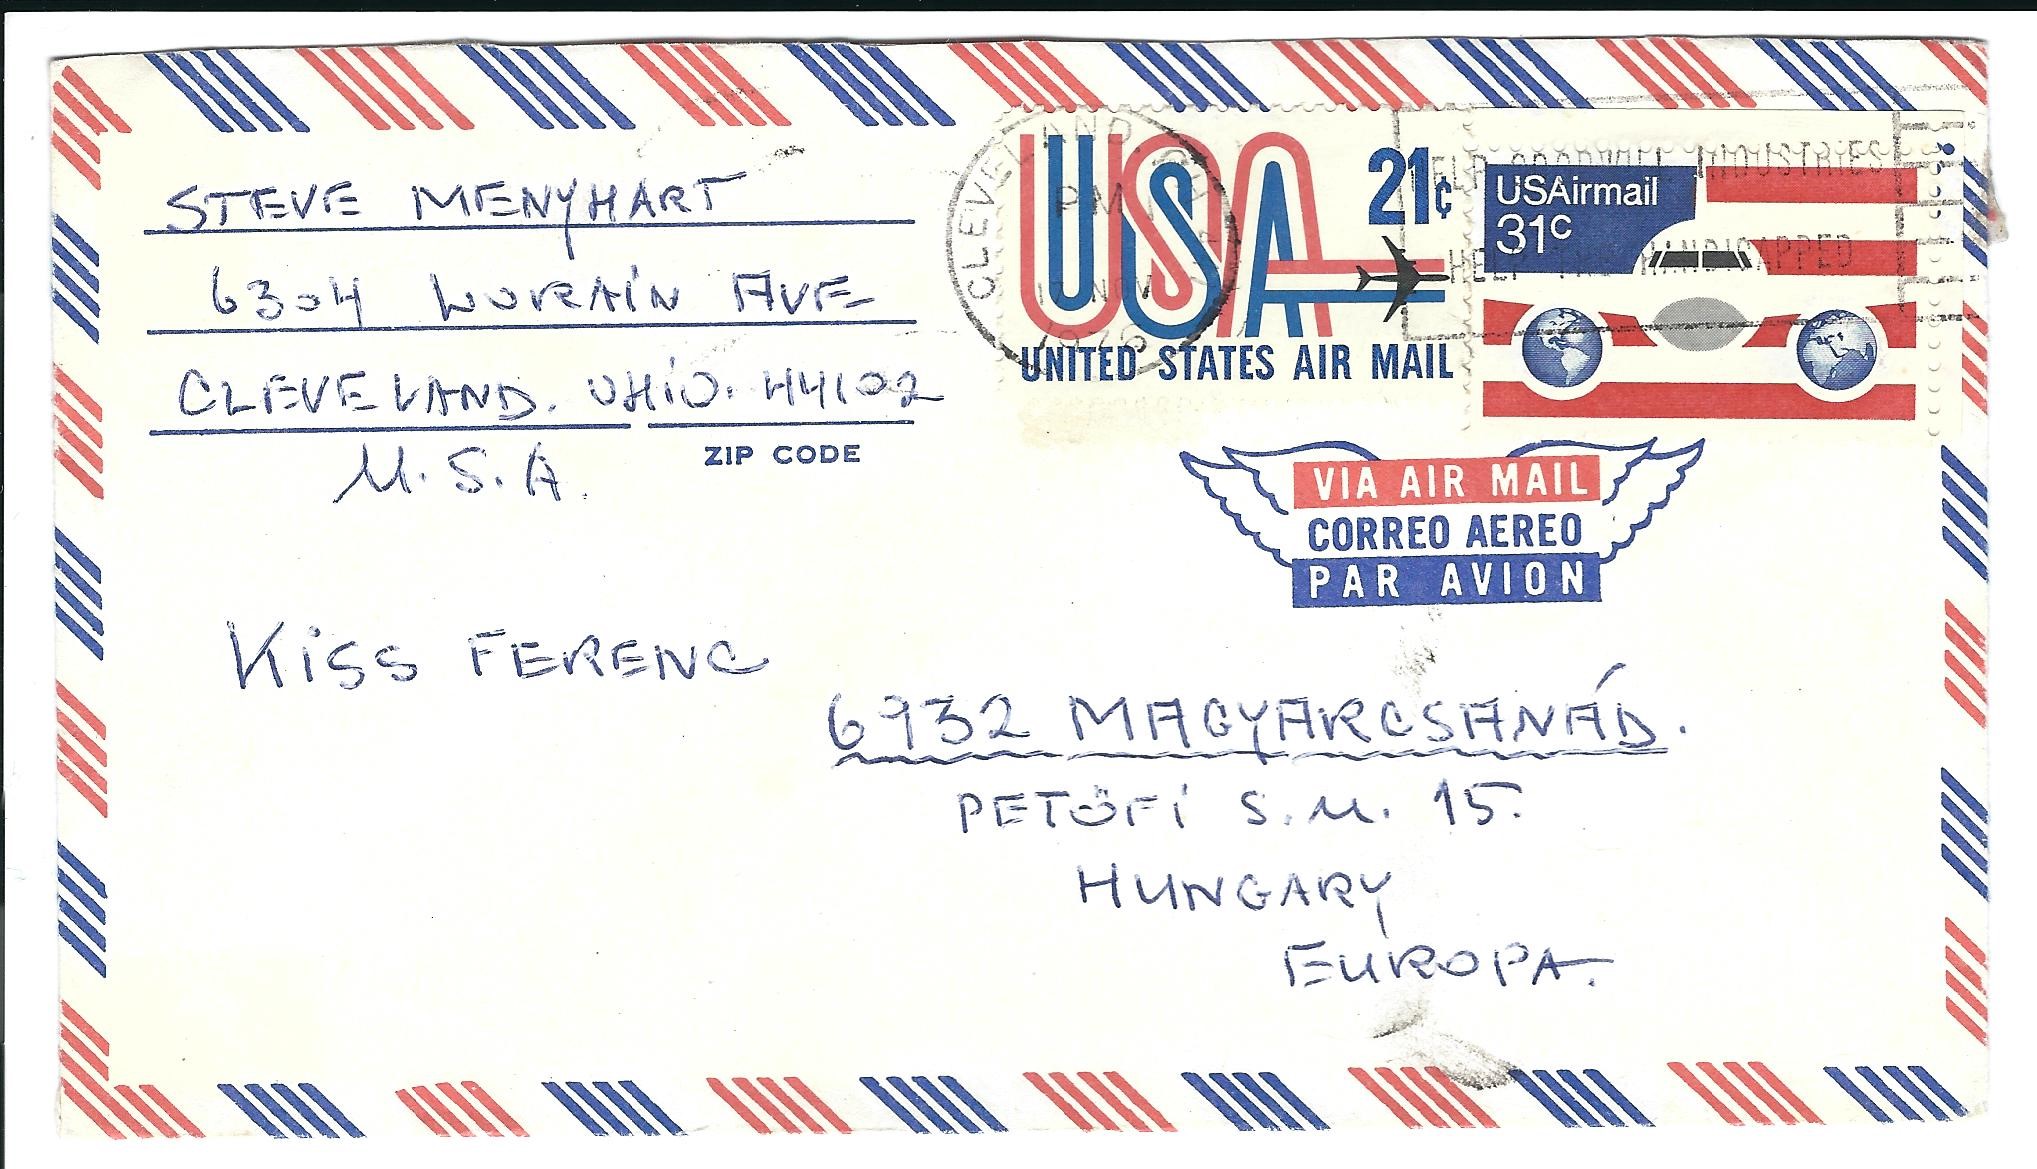 STEVE MENYHART
6304 LORAIN AVE
CLEVELAND. OHIO. 44102
ZIP CODE
U.S.A.
CLEVELAND, OH
PM
17 NOV
1976
USA 21¢
UNITED STATES AIR MAIL
HELP GOODWILL INDUSTRIES
HELP THE HANDICAPPED
USAirmail
31c
VIA AIR MAIL
CORREO AEREO
PAR AVION
KiSS FERENC
6932 MAGYARCSANÁD.
PETŐFi S.U. 15.
HUNGARY
EUROPA.